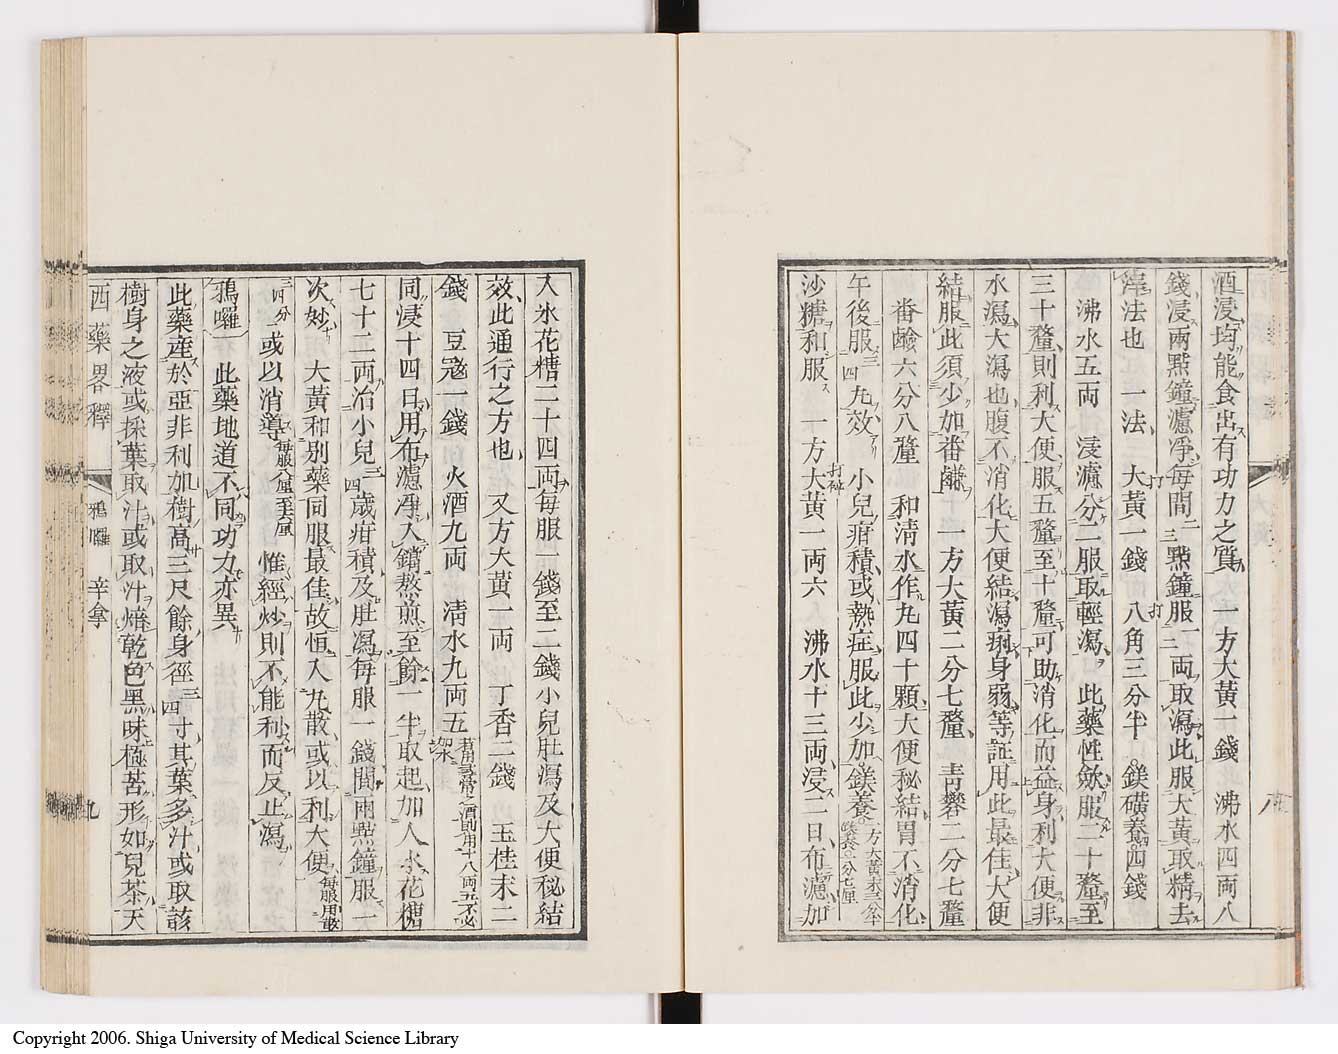 酒浸均能食出有功力之質 一方大黃一錢 沸水四両八
錢浸兩㸃鐘濾凈每間二三㸃鐘服一二両取瀉此服大黃取精去
滓法也 一法 大黃一錢 八角三分半 鎂礦養四錢
沸水五両 浸濾分二服取輕瀉 此藥性斂服二十釐至
三十釐則利大便服五釐至十釐可助消化而益身利大便非
水瀉大瀉也腹不消化大便結瀉痢身弱等証用此最佳大便
結服此須少加番鹻 一方大黃二分七釐 青礬二分七釐
番鹼六分八釐 和清水作丸四十顆大便秘結胃不消化
午後服三四丸效 小兒疳積或熱症服此少加鎂養 一方大黃末三分半鎂養一分七厘
沙糖和服 一方大黃一両六 沸水十三両浸二日布濾加
入氷花糖二十四両每服一錢至二錢小兒肚瀉及大便秘結
效此通行之方也 又方大黃一両 丁香二錢 玉桂末二
錢 豆蔻一錢 火酒九両 清水九両五 若用尋常之酒則用十八両五不必加水
同浸十四日用布濾凈入鍋熬煎至餘一半取起加入氷花糖
七十二両治小兒三四歲疳積及肚瀉每服一錢間兩㸃鐘服一
次妙 大黃和別藥同服最佳故恒入丸散或以利大便 每服用數
三四分 或以消導 每服八釐至六厘 惟經炒則不能利而反止瀉
鴉囉 此藥地道不同功力亦異
此藥產於亞非利加樹高三尺餘身徑三四寸其葉多汁或取該
樹身之液或採葉取汁或取汁焙乾色黑味極苦形如兒茶天
西藥畧釋 鴉囉 辛拿 九
Copyright 2006. Shiga University of Medical Science Library